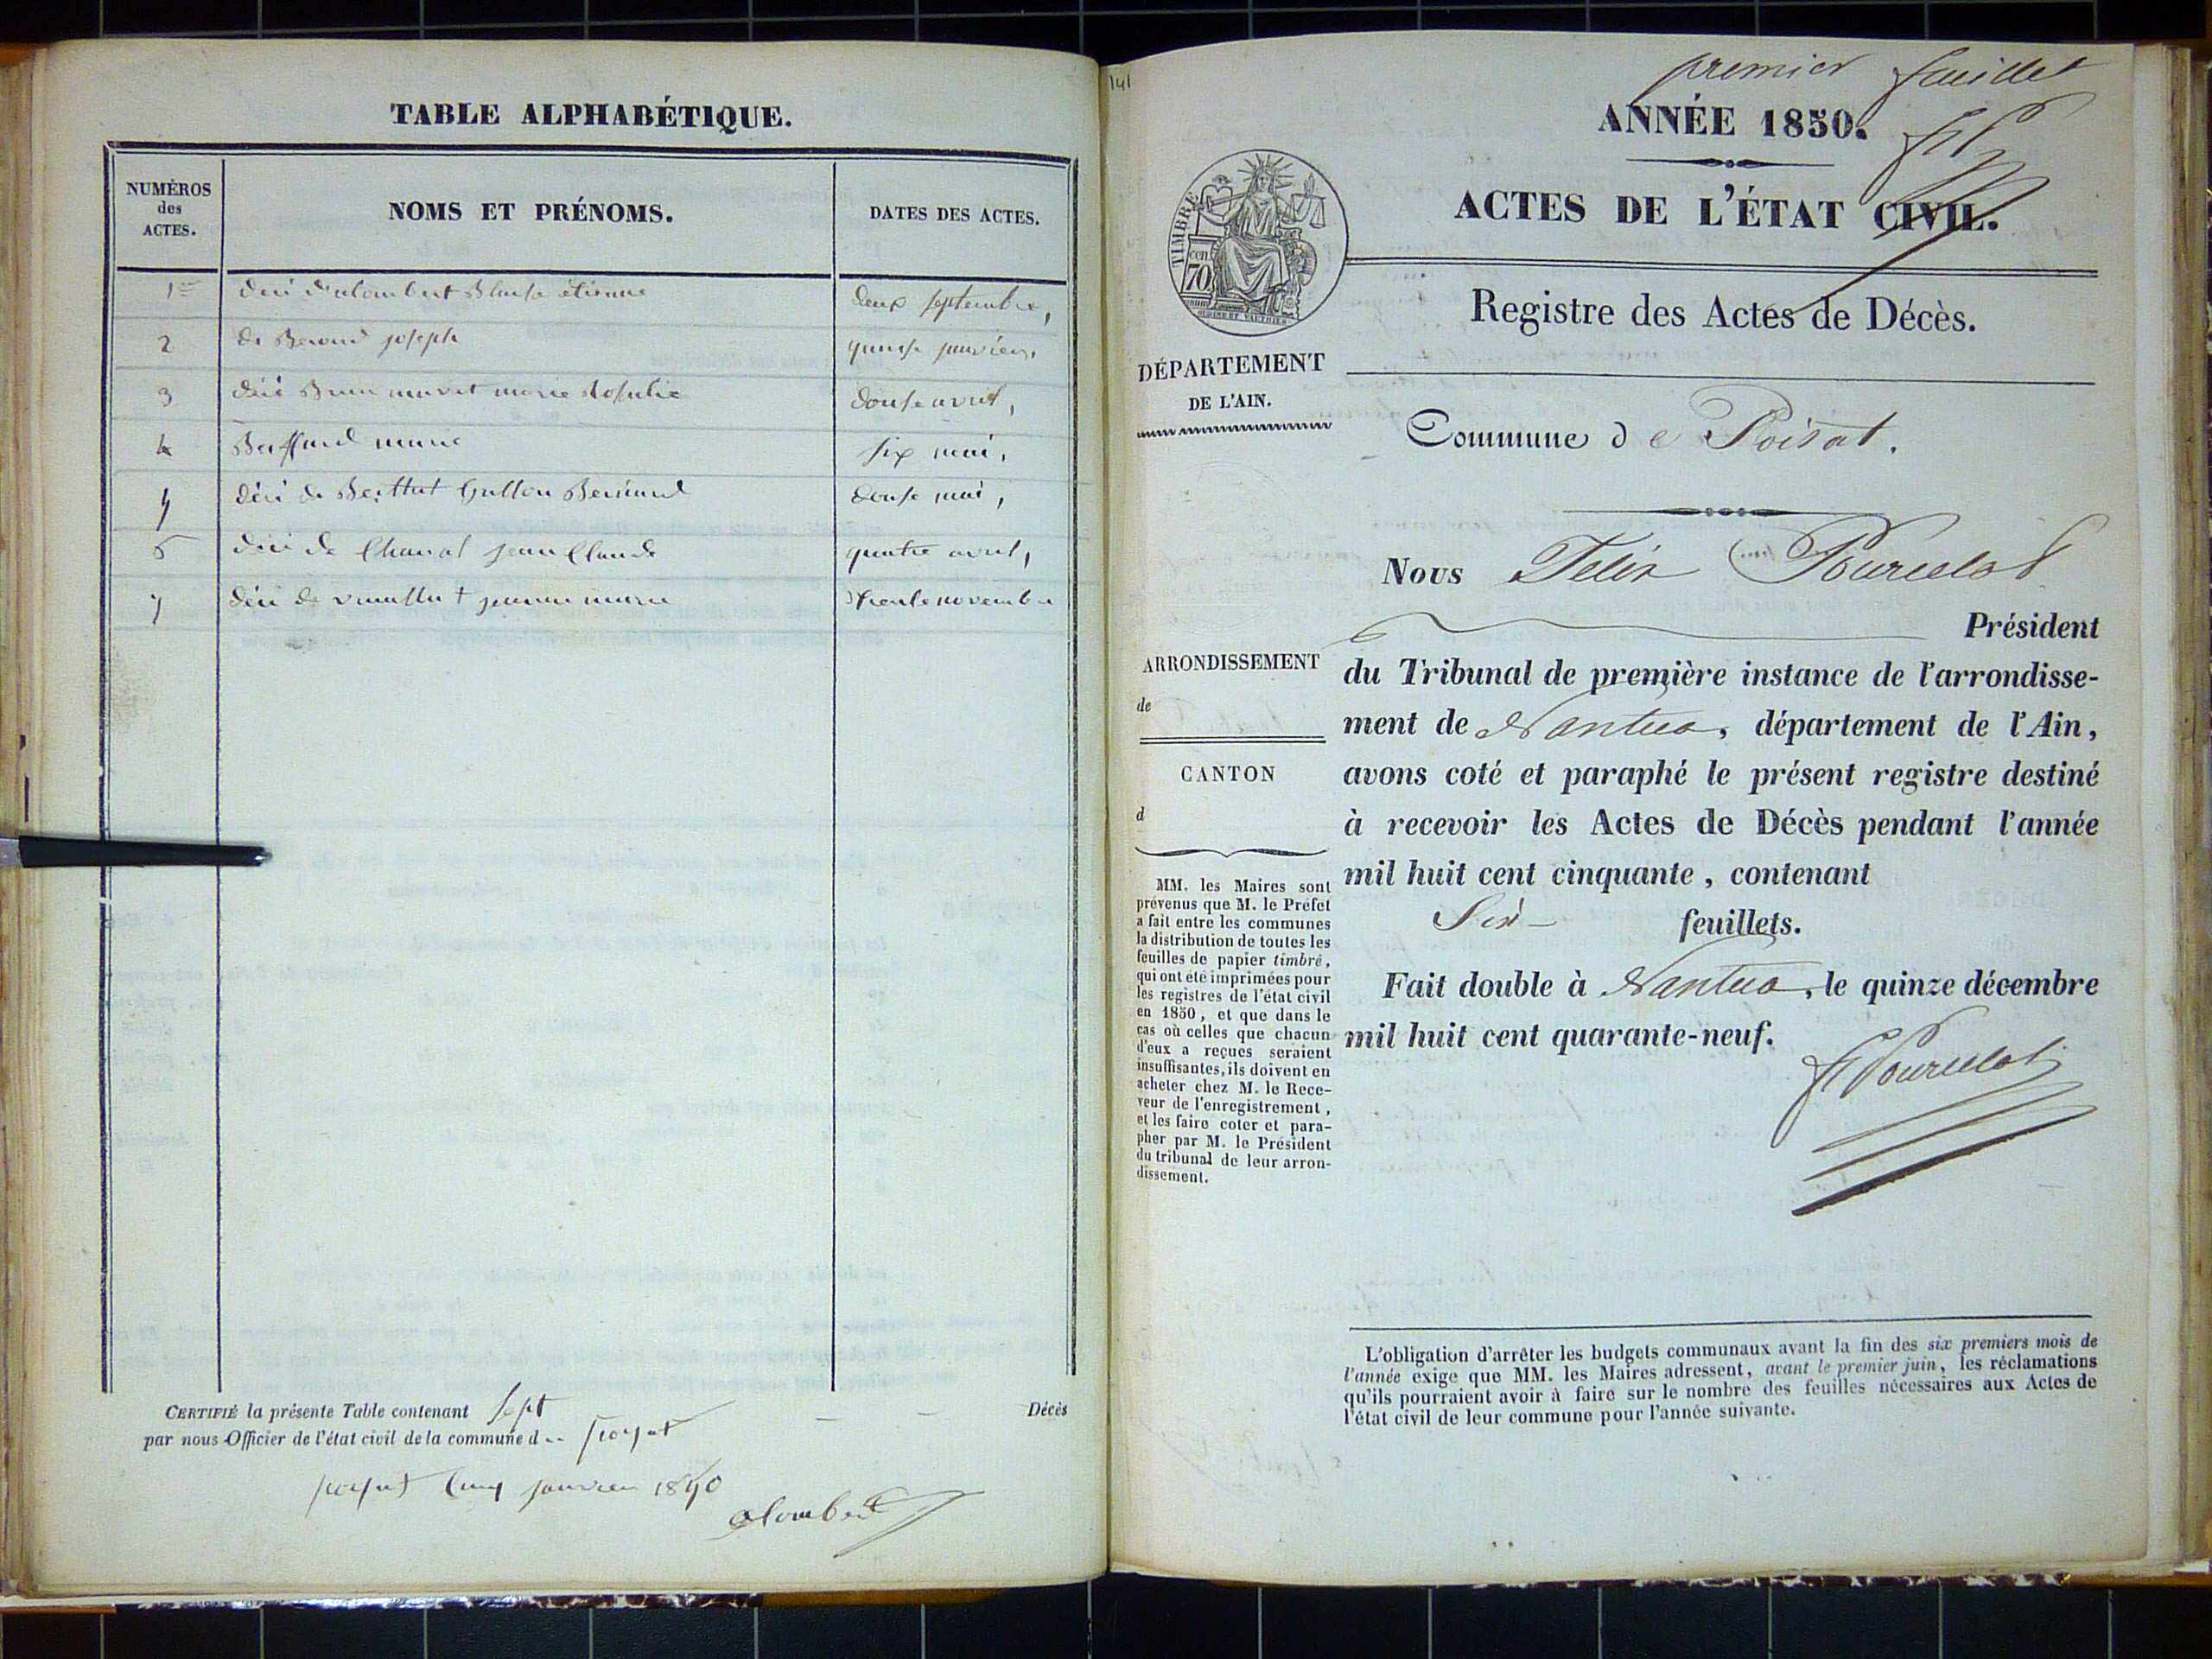 TABLE ALPHABÉTIQUE.
NUMÉROS
des
ACTES.
NOMS ET PRÉNOMS.
DATES DES ACTES.
1er Blaise étienne deux septembre,
2 de joseph quinse janvier,
3 marie Rosulie douse avril,
4 marie six mai,
douse mai,
de Chanal jean Claude quatre avril,
7 de jeanne marie trente novembre
CERTIFIÉ la présente Table contenant Sept Décès
par nous Officier de l'état civil de la commune d
janvier
alombert
141
premier feuillet
ANNÉE 1850.
ACTES DE L'ÉTAT CIVIL.
TIMBRE
cen
70
Registre des Actes de Décès.
DÉPARTEMENT
DE L'AIN.
Commune de Poisat.
Nous Félix Pourcelot
Président
du Tribunal de première instance de l'arrondisse-
ment de Nantua, département de l'Ain,
avons coté et paraphé le présent registre destiné
à recevoir les Actes de Décès pendant l'année
mil huit cent cinquante, contenant
Six feuillets.
Fait double à Nantua, le quinze décembre
mil huit cent quarante-neuf.
F Pourcelot
ARRONDISSEMENT
de
CANTON
d
MM. les Maires sont
prévenus que M. le Préfet
a fait entre les communes
la distribution de toutes les
feuilles de papier timbré,
qui ont été imprimées pour
les registres de l'état civil
en 1850, et que dans le
cas où celles que chacun
d'eux a reçues seraient
insuffisantes, ils doivent en
acheter chez M. le Rece-
veur de l'enregistrement,
et les faire coter et para-
pher par M. le Président
du tribunal de leur arron-
dissement.
L'obligation d'arrêter les budgets communaux avant la fin des six premiers mois de
l'année exige que MM. les Maires adressent, avant le premier juin, les réclamations
qu'ils pourraient avoir à faire sur le nombre des feuilles nécessaires aux Actes de
l'état civil de leur commune pour l'année suivante.